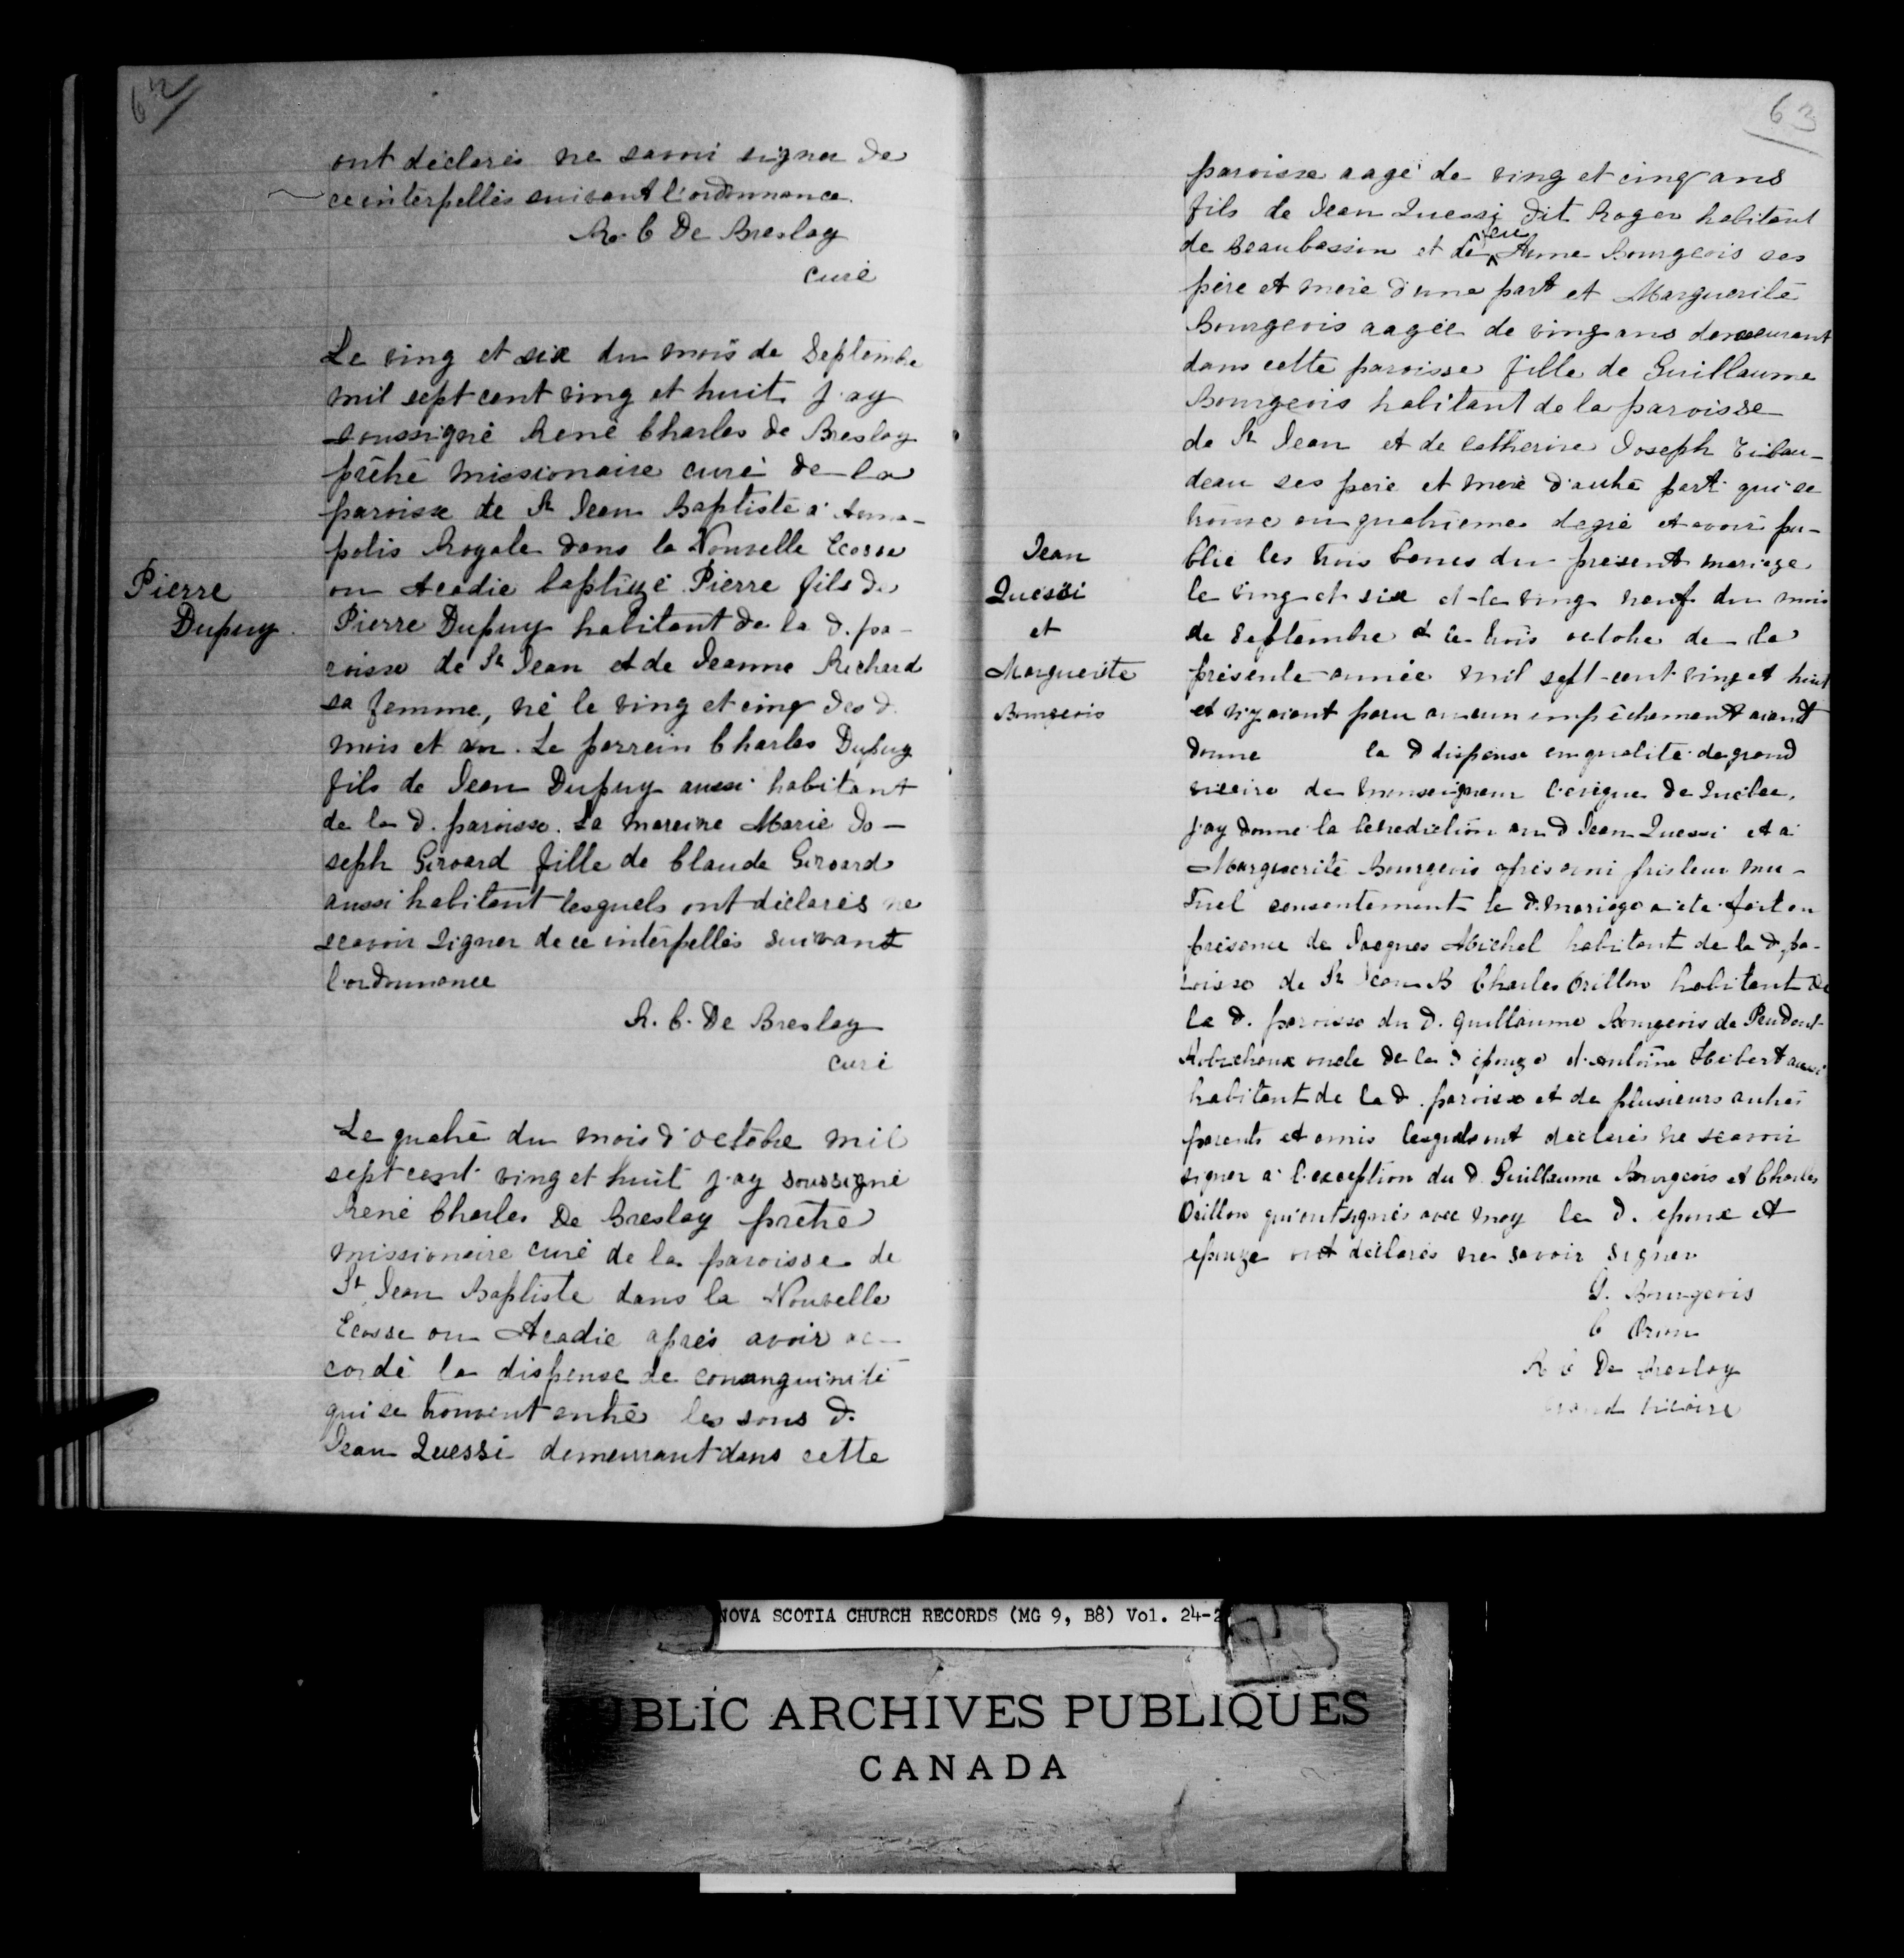 62
ont déclarés ne savoir signer de
ce interpellés suivant l'ordonnance.
R. C De Breslay
curé
Le ving et six du mois de Septembre
mil sept cent ving et huit j'ay
soussigné René Charles de Breslay
prêtre missionaire curé de la
paroisse de St Jean Baptiste a Anna-
polis Royale dans la Nouvelle Ecosse
ou Acadie baptizé Pierre fils de
Pierre Dupuy habitant de la d. pa-
roisse de St Jean et de Jeanne Richard
sa femme, né le ving et cinq des d.
mois et an. Le parrein Charles Dupuy
fils de Jean Dupuy aussi habitant
de la d. paroisse. La mareine Marie Jo-
seph Girouard fille de Claude Girouard
aussi habitant lesquels ont déclarés ne
scavoir signer de ce interpellés suivant
l'ordonnance
R. C. De Breslay
curé
Pierre
Dupuy.
Le quatre du mois d'octobre mil
sept cent ving et huit j'ay soussigné
René Charles De Breslay prêtre
missionaire curé de la paroisse de
St Jean Baptiste dans la Nouvelle
Ecosse ou Acadie aprés avoir ac-
cordé la dispense de consanguinité
qui se trouvent entre les sous d.
Jean Quessi demeurant dans cette
63
paroisse aagé de ving et cinq ans
fils de Jean Quessi dit Roger habitant
de Beaubassin et de feu Anne Bourgeois ses
père et mère d'une part et Marguerite
Bourgeois aagée de ving ans demeurant
dans cette paroisse fille de Guillaume
Bourgeois habitant de la paroisse
de St Jean et de Catherine Joseph Tibau-
deau ses père et mère d'autre part qui se
trouve au quatrieme degré et avoir pu-
blié les trois bancs du present mariage
le ving et six et le ving neuf du mois
de Septembre et le trois octobre de la
présente année mil sept cent ving et huit
et n'y aiant paru aucun empêchement aiant
donne la d dispense en qualité de grand
vicaire de monseigneur l'évêque de Québec,
j'ay donné la benediction au d Jean Quessi et a
Marguerite Bourgeois aprés avoir pris leur mu-
tuel consentement le d. mariage a été fait en
présence de Jacques Michel habitant de la d. pa-
roisse de St Jean B Charles Orillon habitant de
la d. paroisse du d. guillaume Bourgeois de Prudent
Robichoux oncle de la d épouze d'Antoine Hebert aussi
habitant de la d. paroisse et de plusieurs autres
parents et amis lesquels ont déclarés ne scavoir
signer a l'exception du d. Guillaume Bourgeois et Charles
Orillon qui ont signés avec moy le d. epoux et
epouze ont déclarés ne savoir signer
G. Bourgeois
C
R C De Breslay
grand vicaire
Jean
Quessi
et
Marguerite
Bourgeois
NOVA SCOTIA CHURCH RECORDS (MG 9, B8) Vol. 24-2
PUBLIC ARCHIVES PUBLIQUES
CANADA